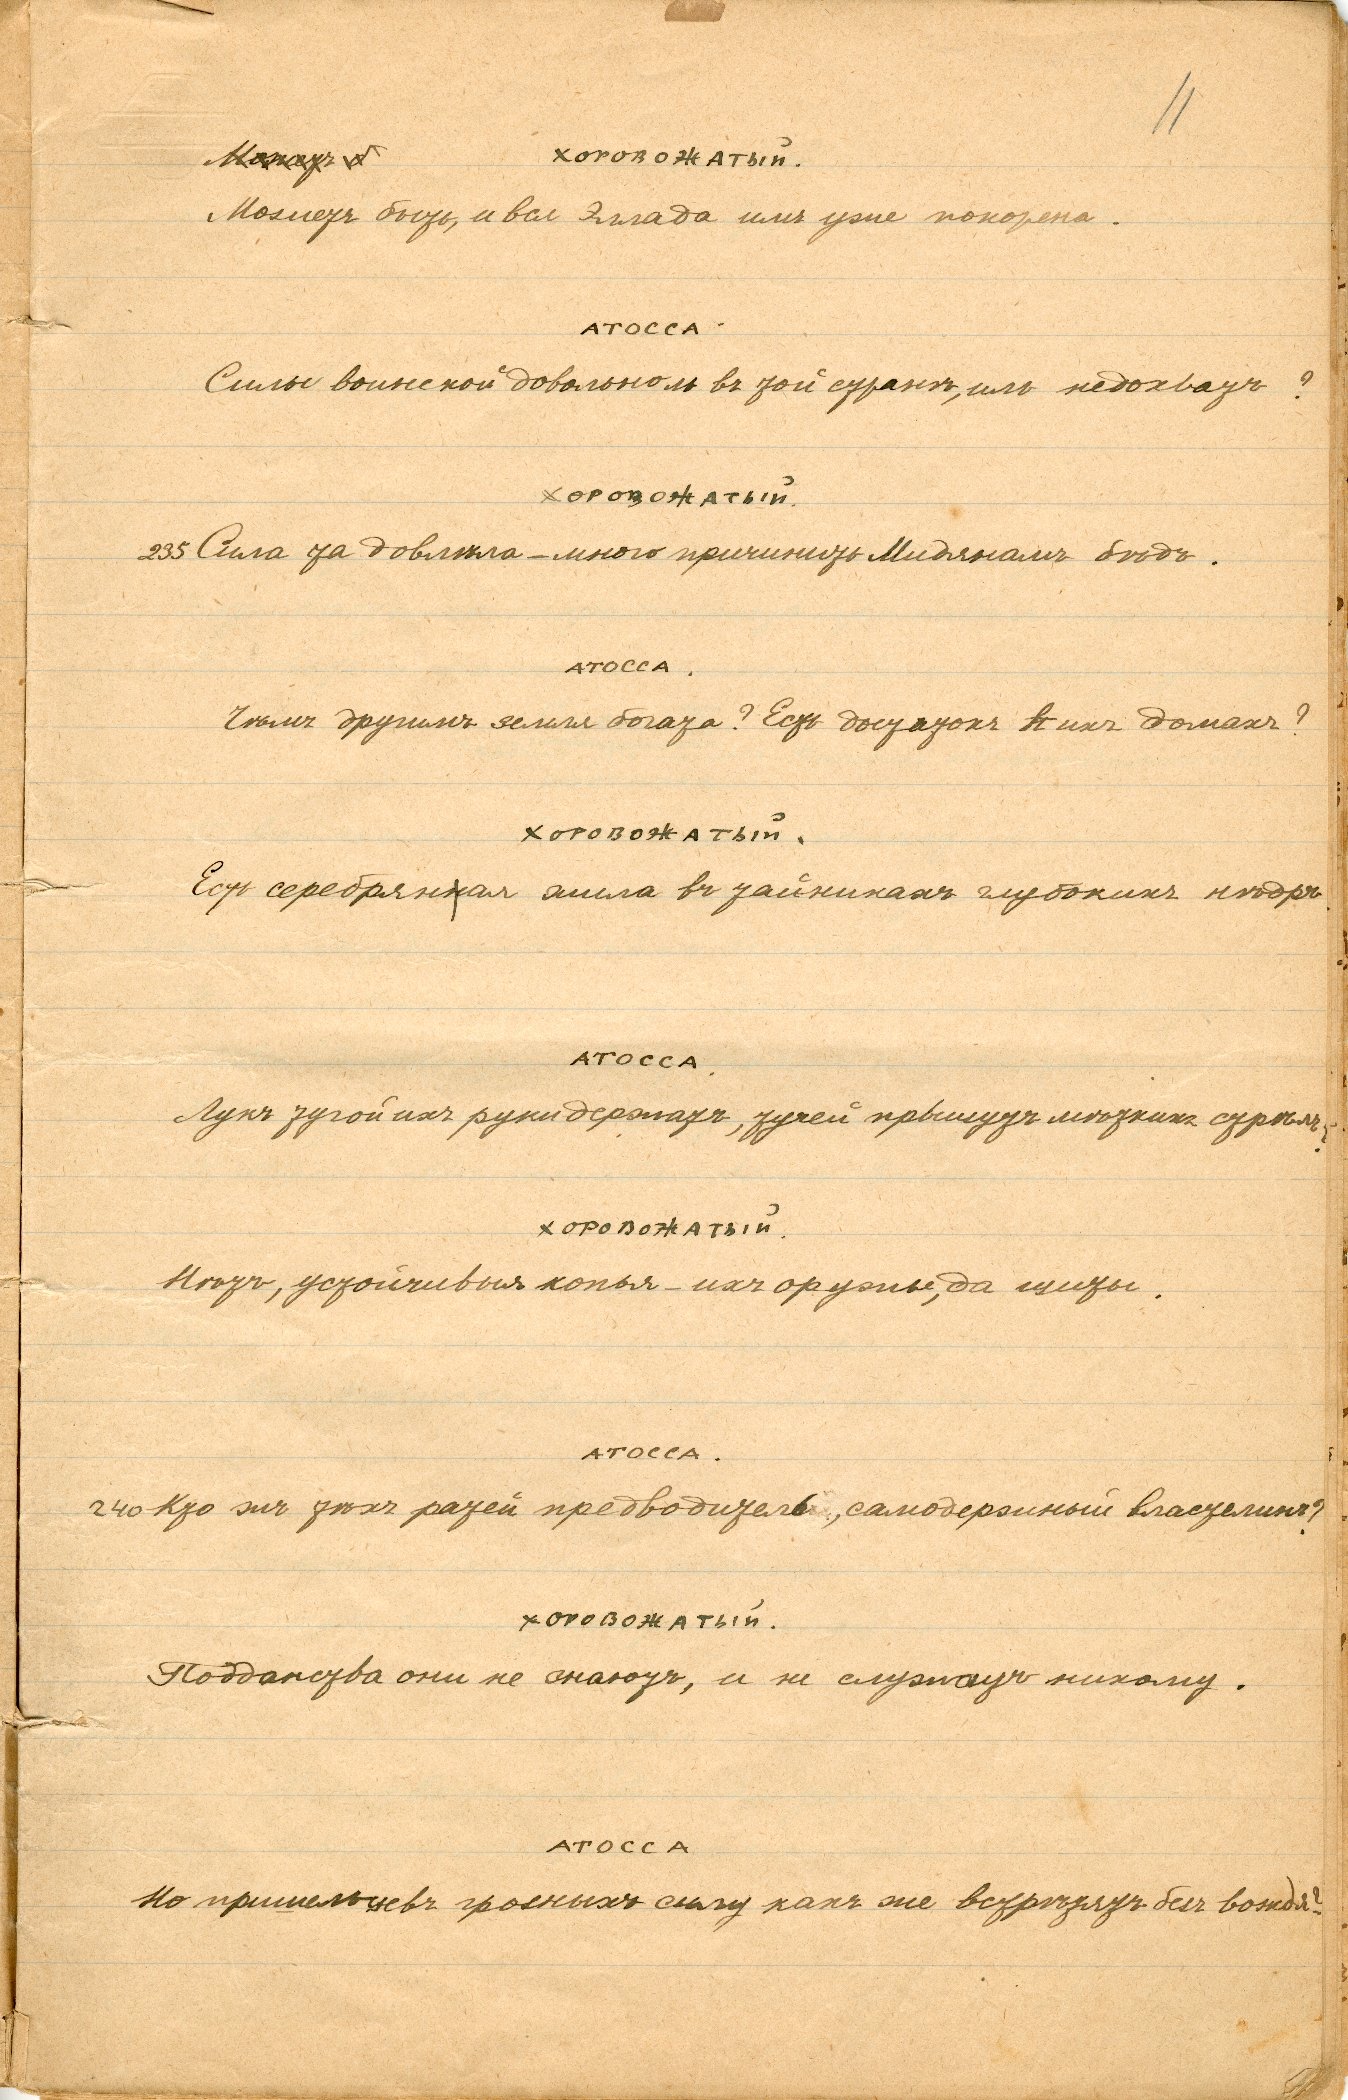 11
ХОРОВОЖАТЫЙ.
Можетъ быть, и вся Эллада имъ уже покорена.
АТОССА.
Силы воинской довольноль въ той странѣ, иль недохватъ?
ХОРОВОЖАТЫЙ.
235 Сила та довлѣла – много причинить Мидянамъ бѣдъ.
АТОССА.
Чѣмъ другимъ земля богата? Есть достатокъ въ ихъ домахъ?
ХОРОВОЖАТЫЙ.
Есть серебряная жила въ тайникахъ глубокихъ нѣдръ.
АТОССА.
Лукъ тугой ихъ руки держатъ, тучей прыщутъ мѣткихъ стрѣлъ?
ХОРОВОЖАТЫЙ.
Нѣтъ, устойчивыя копья – ихъ оружье, да щиты.
АТОССА.
240 Кто жъ тѣхъ ратей предводитель, самодержный властелинъ?
ХОРОВОЖАТЫЙ.
Подданства они не знаютъ, и не служатъ никому.
АТОССА
Но пришельцевъ грозныхъ силу какъ же встрѣтятъ безъ вождя?